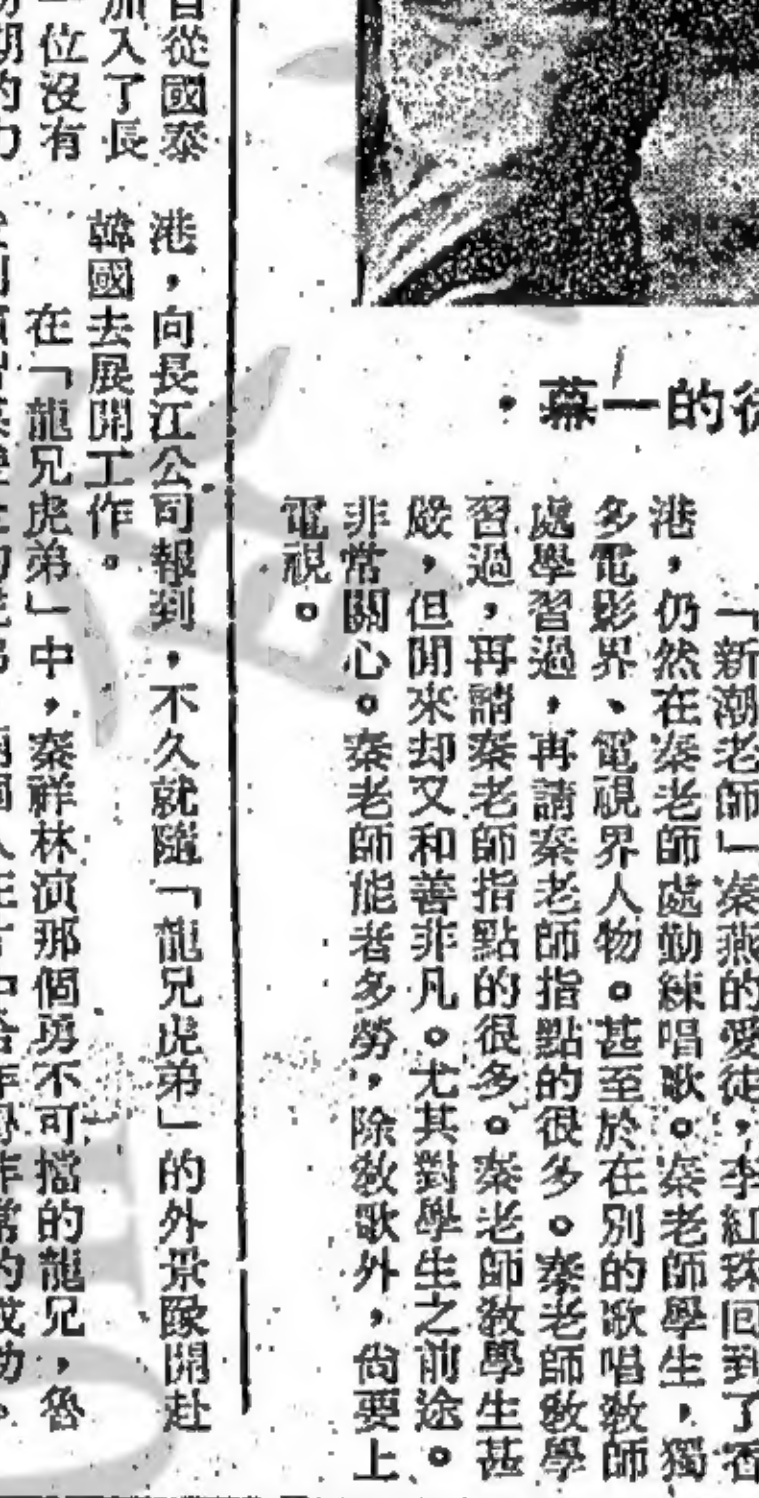 的一幕・
「新潮老師」秦燕的愛徒,李紅珠回到了香
港,仍然在秦老師處勤練唱歌。秦老師學生,獨
多電影界、電視界人物。甚至於在別的歌唱教師
處學習過,再請秦老師指點的很多。秦老師教學
習過,再請秦老師指點的很多。秦老師教學生甚
嚴,但閒來却又和善非凡。尤其對學生之前途。
非常關心。秦老師能者多勞,除教歌外,尚要上
電視。
自從國泰
加入了長
一位沒有
期的力
港,向長江公司報到,不久就隨「龍兄虎弟」的外景隊開赴
韓國去展開工作。
在「龍兄虎弟」中,秦祥林演那個勇不可擋的龍兄,魯